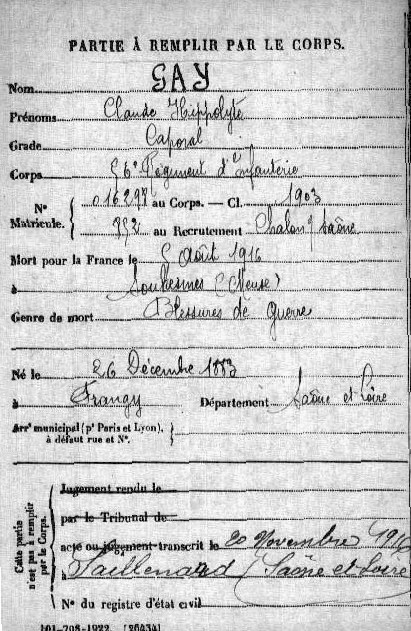 PARTIE À REMPLIR PAR LE CORPS.
Nom GAY
Prénoms Claude Hippolyte
Grade Caporal
Corps 56e Régiment d'Infanterie
No Matricule. { 016297 au Corps. — Cl. 1903
952 au Recrutement Chalon s/ Saône
Mort pour la France le 5 Août 1916
à Souhesmes (Meuse)
Genre de mort Blessures de Guerre
Né le 26 Décembre 1883
à Frangy Département Saône et Loire
Arrt municipal (pr Paris et Lyon), à défaut rue et No. {
Cette partie n'est pas à remplir par le Corps.
Jugement rendu le
par le Tribunal de
acte ou jugement transcrit le 20 Novembre 1916
à Saillenard (Saône et Loire
No du registre d'état civil
101-708-1922. [26434]